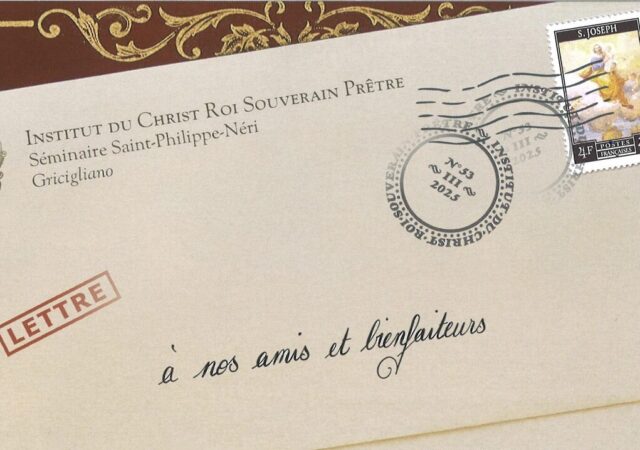 Institut du Christ Roi Souverain Prêtre
Séminaire Saint-Philippe-Néri
Gricigliano
S. JOSEPH
4F POSTES FRANÇAISES
INSTITUT DU CHRIST ROI SOUVERAIN PRÊTRE
N°53
III
2025
LETTRE
à nos amis et bienfaiteurs